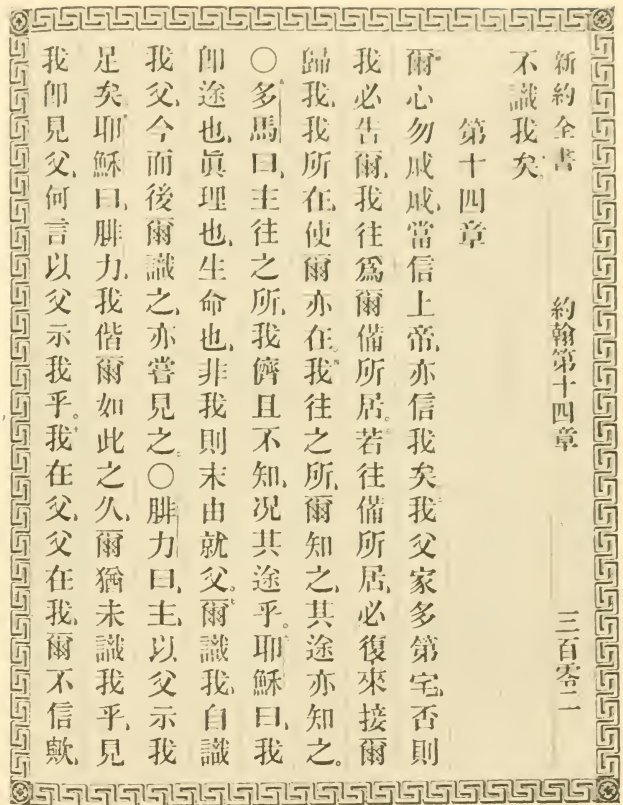 新約全書 約翰第十四章 三百零二
不識我矣、
第十四章
爾心勿戚戚、當信上帝、亦信我矣、我父家多第宅、否則
我必告爾、我往爲爾備所居。若往備所居、必復來接爾
歸我、我所在、使爾亦在、我往之所、爾知之、其途亦知之。
○多馬曰、主往之所、我儕且不知、况其途乎。耶穌曰、我
卽途也、眞理也、生命也、非我則末由就父。爾識我、自識
我父、今而後爾識之、亦嘗見之。○腓力曰、主、以父示我
足矣、耶穌曰、腓力、我偕爾如此之久、爾猶未識我乎、見
我卽見父、何言以父示我乎。我在父、父在我、爾不信歟、